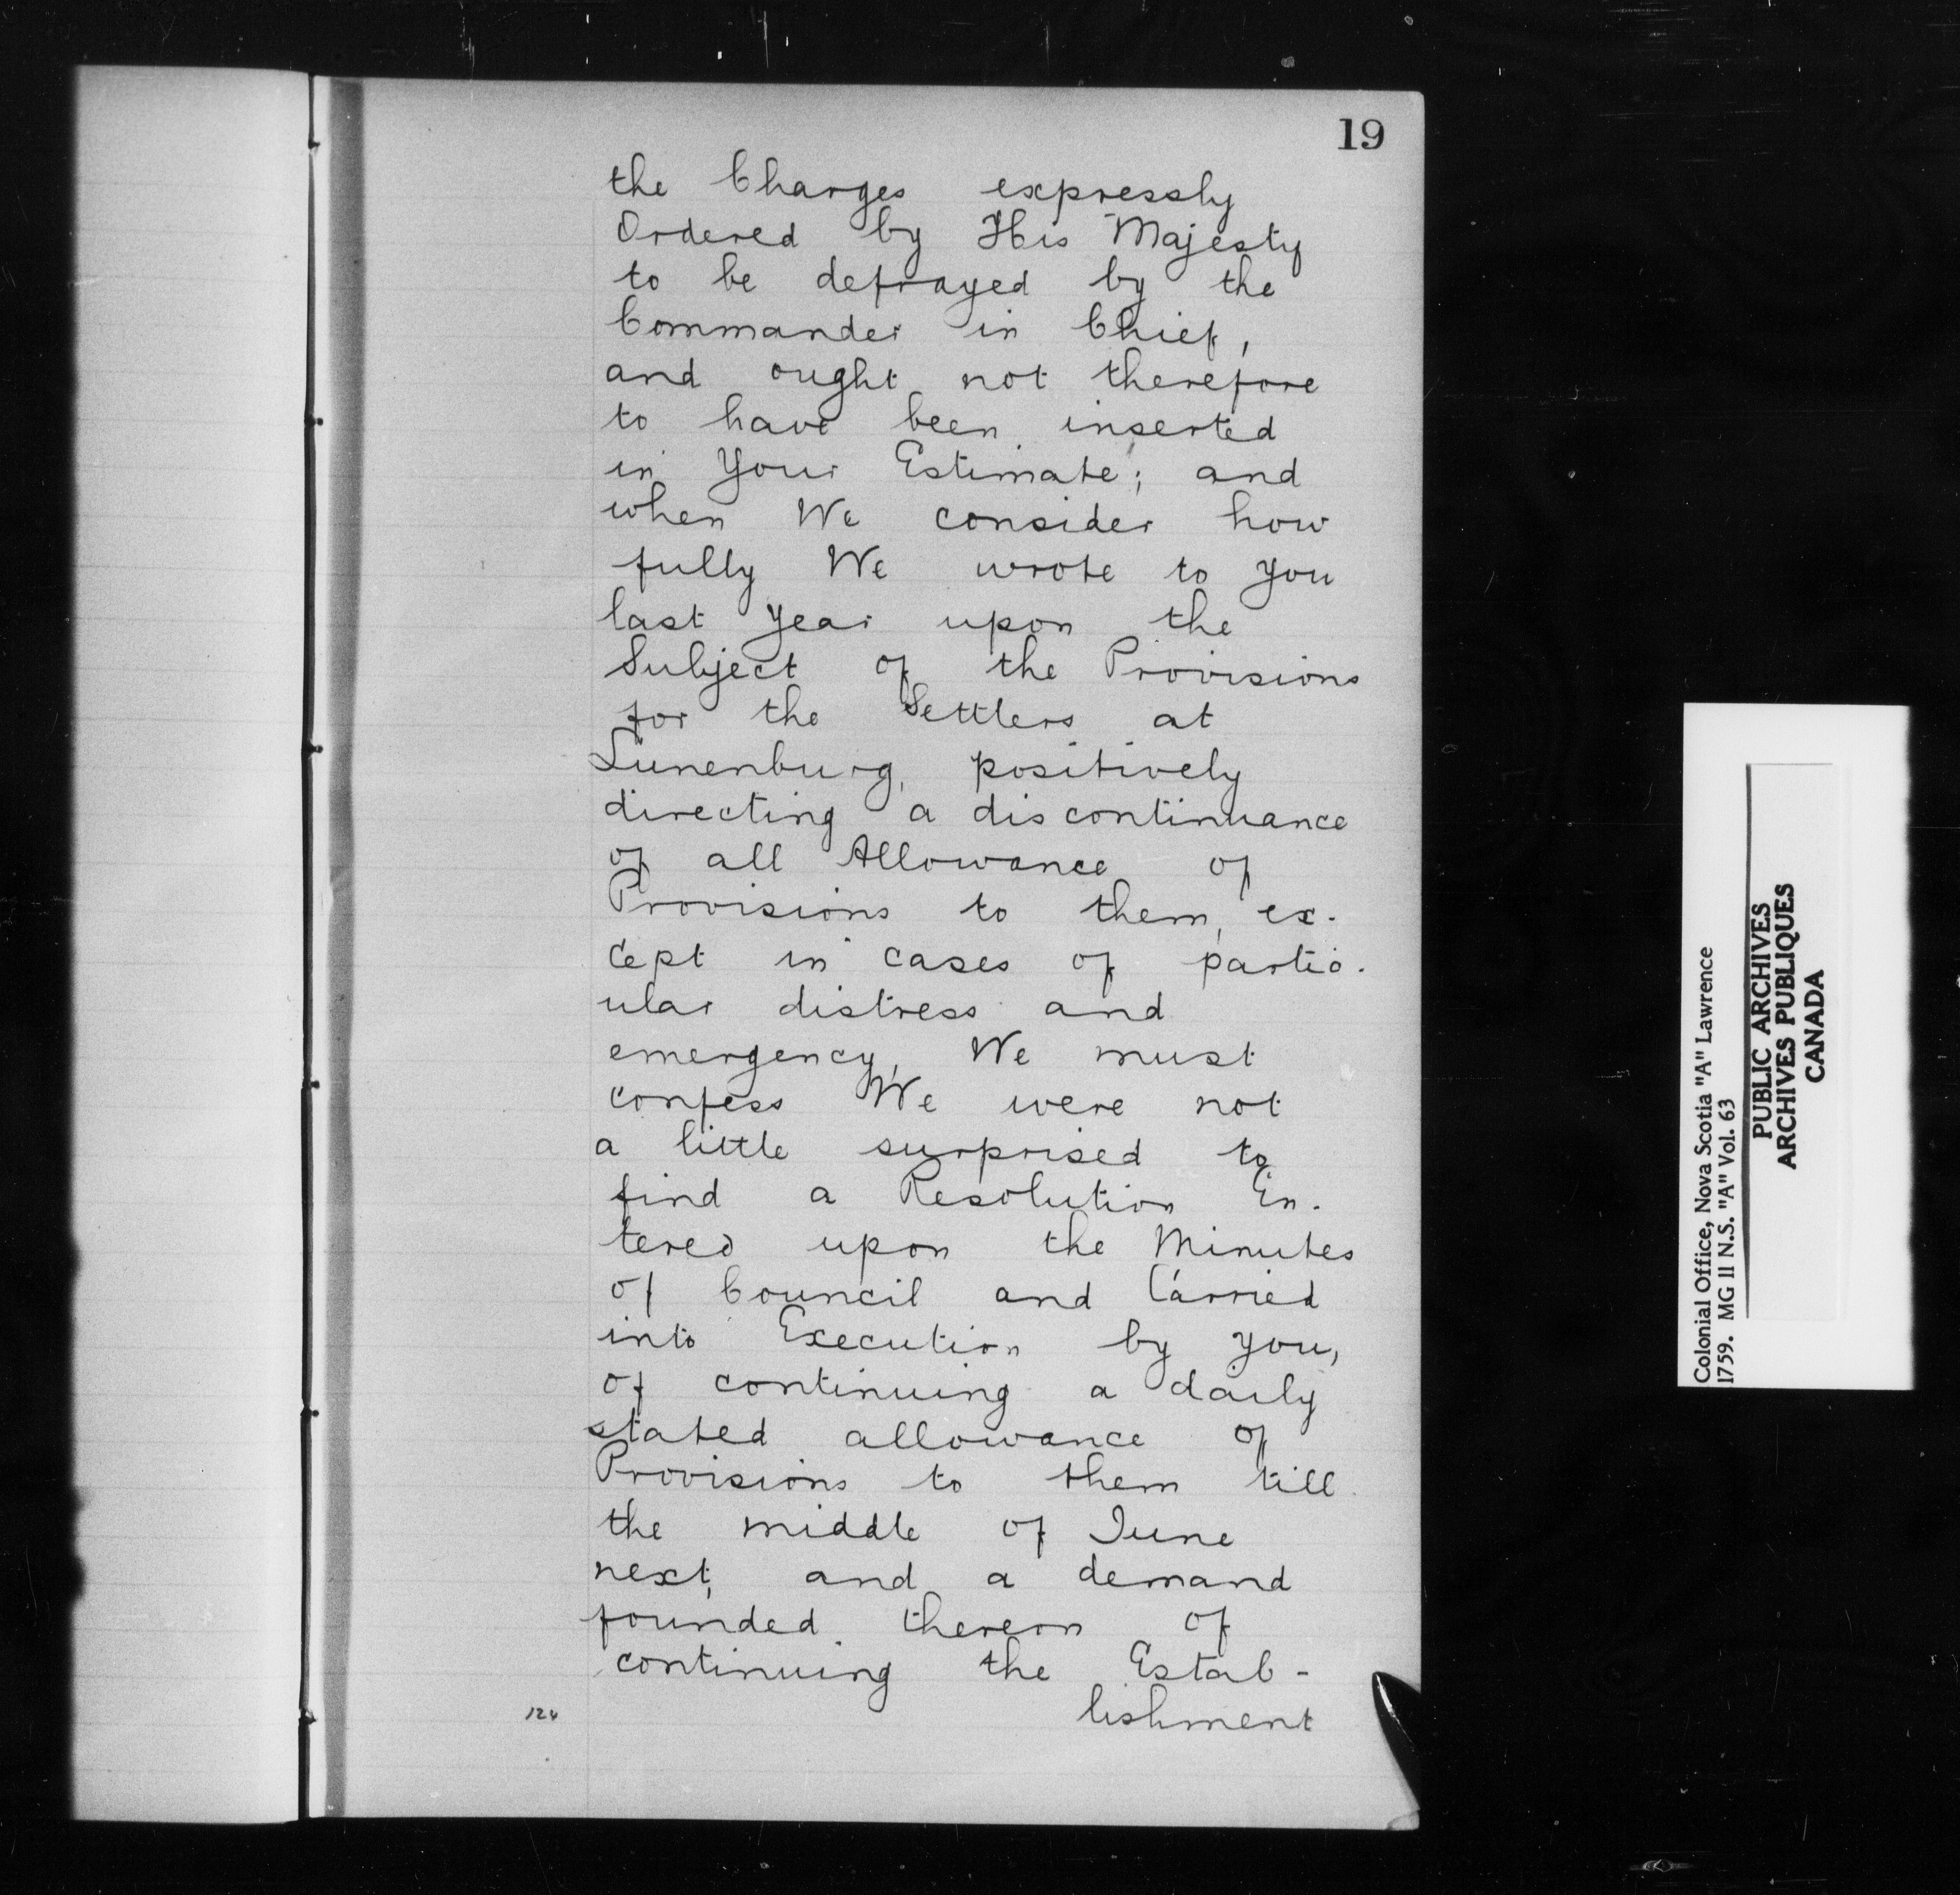 19
the Charges expressly
Ordered by His Majesty
to be defrayed by the
Commander in Chief,
and ought not therefore
to have been inserted
in Your Estimate; and
when We consider how
fully We wrote to You
last Year upon the
Subject of the Provisions
for the Settlers at
Lunenburg, positively
directing a discontinuance
of all Allowance of
Provisions to them, ex-
cept in cases of partic-
ular distress and
emergency, We must
confess We were not
a little surprised to
find a Resolution En-
tered upon the Minutes
of Council and Carried
into Execution by You,
of continuing a daily
stated allowance of
Provisions to them till
the middle of June
next, and a demand
founded thereon of
continuing the Estab-
lishment
124
Colonial Office, Nova Scotia "A" Lawrence
1759. MG 11 N.S. "A" Vol. 63
PUBLIC ARCHIVES
ARCHIVES PUBLIQUES
CANADA